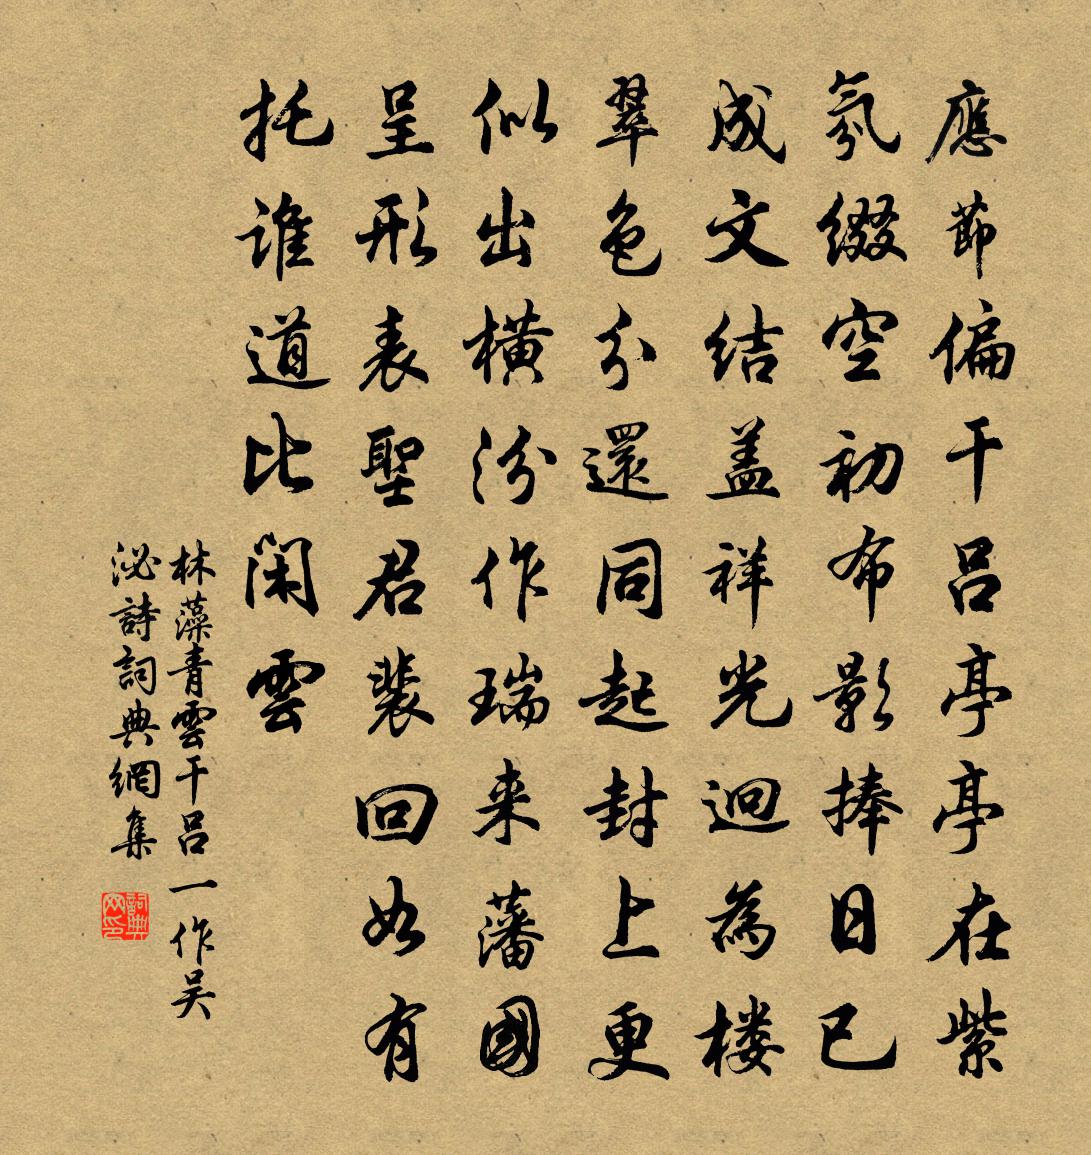 應節偏干呂亭亭在紫
氛綴空初布影捧日已
成文結盖祥光迥為楼
翠色分還同起封上更
似出横汾作瑞来藩國
呈形表聖君裴回如有
托誰道比閑雲
林藻青雲干呂一作吴
泌詩詞典網集
詞典
网印